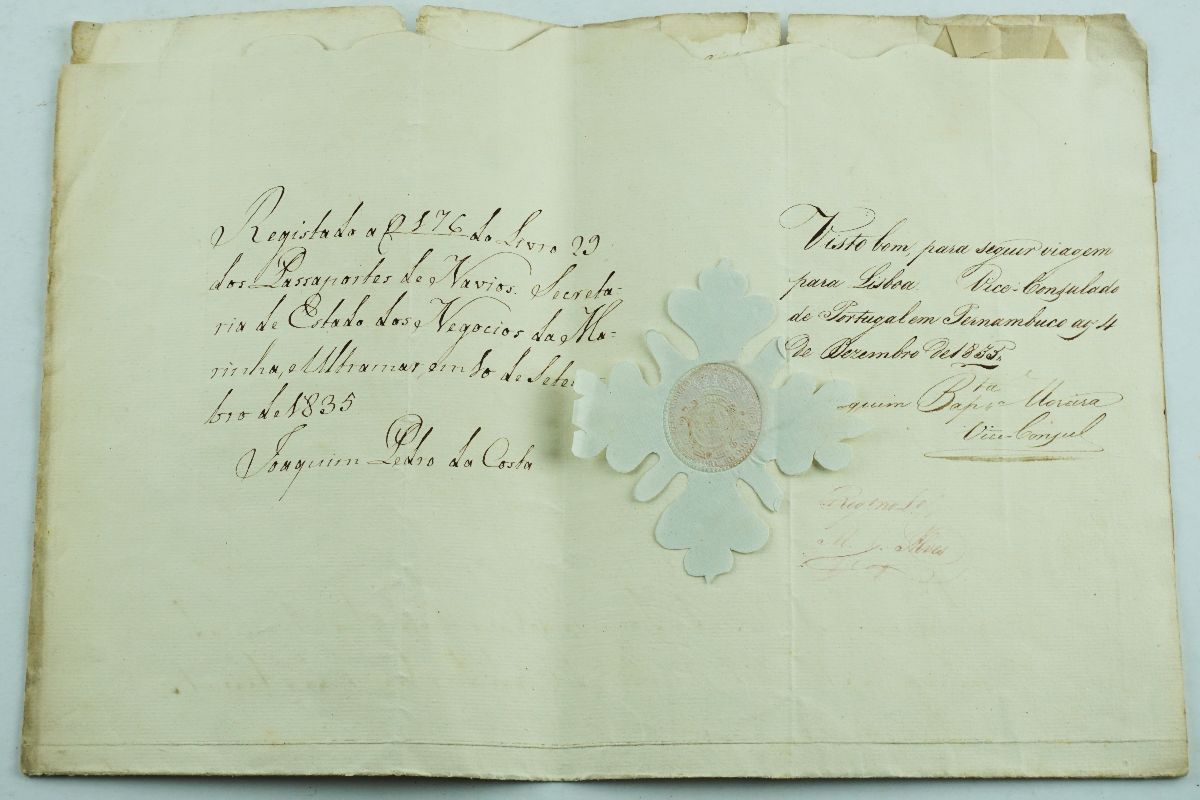 Registado a f 176 do Livro 29
dos Passaportes de Navios. Secreta-
ria de Estado dos Negocios da Ma-
rinha, e Ultramar, em 10 de Setem
bro de 1835
Joaquim Pedro da Costa
Visto bom, para seguir viagem
para Lisboa. Vice-Consulado
de Portugal em Pernambuco aos 4
de Dezembro de 1835.
quim Bapta Moreira
Vice-Consul